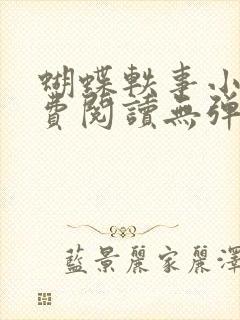 蝴蝶軼事小
費閱讀無彈
藍景麗家麗澤